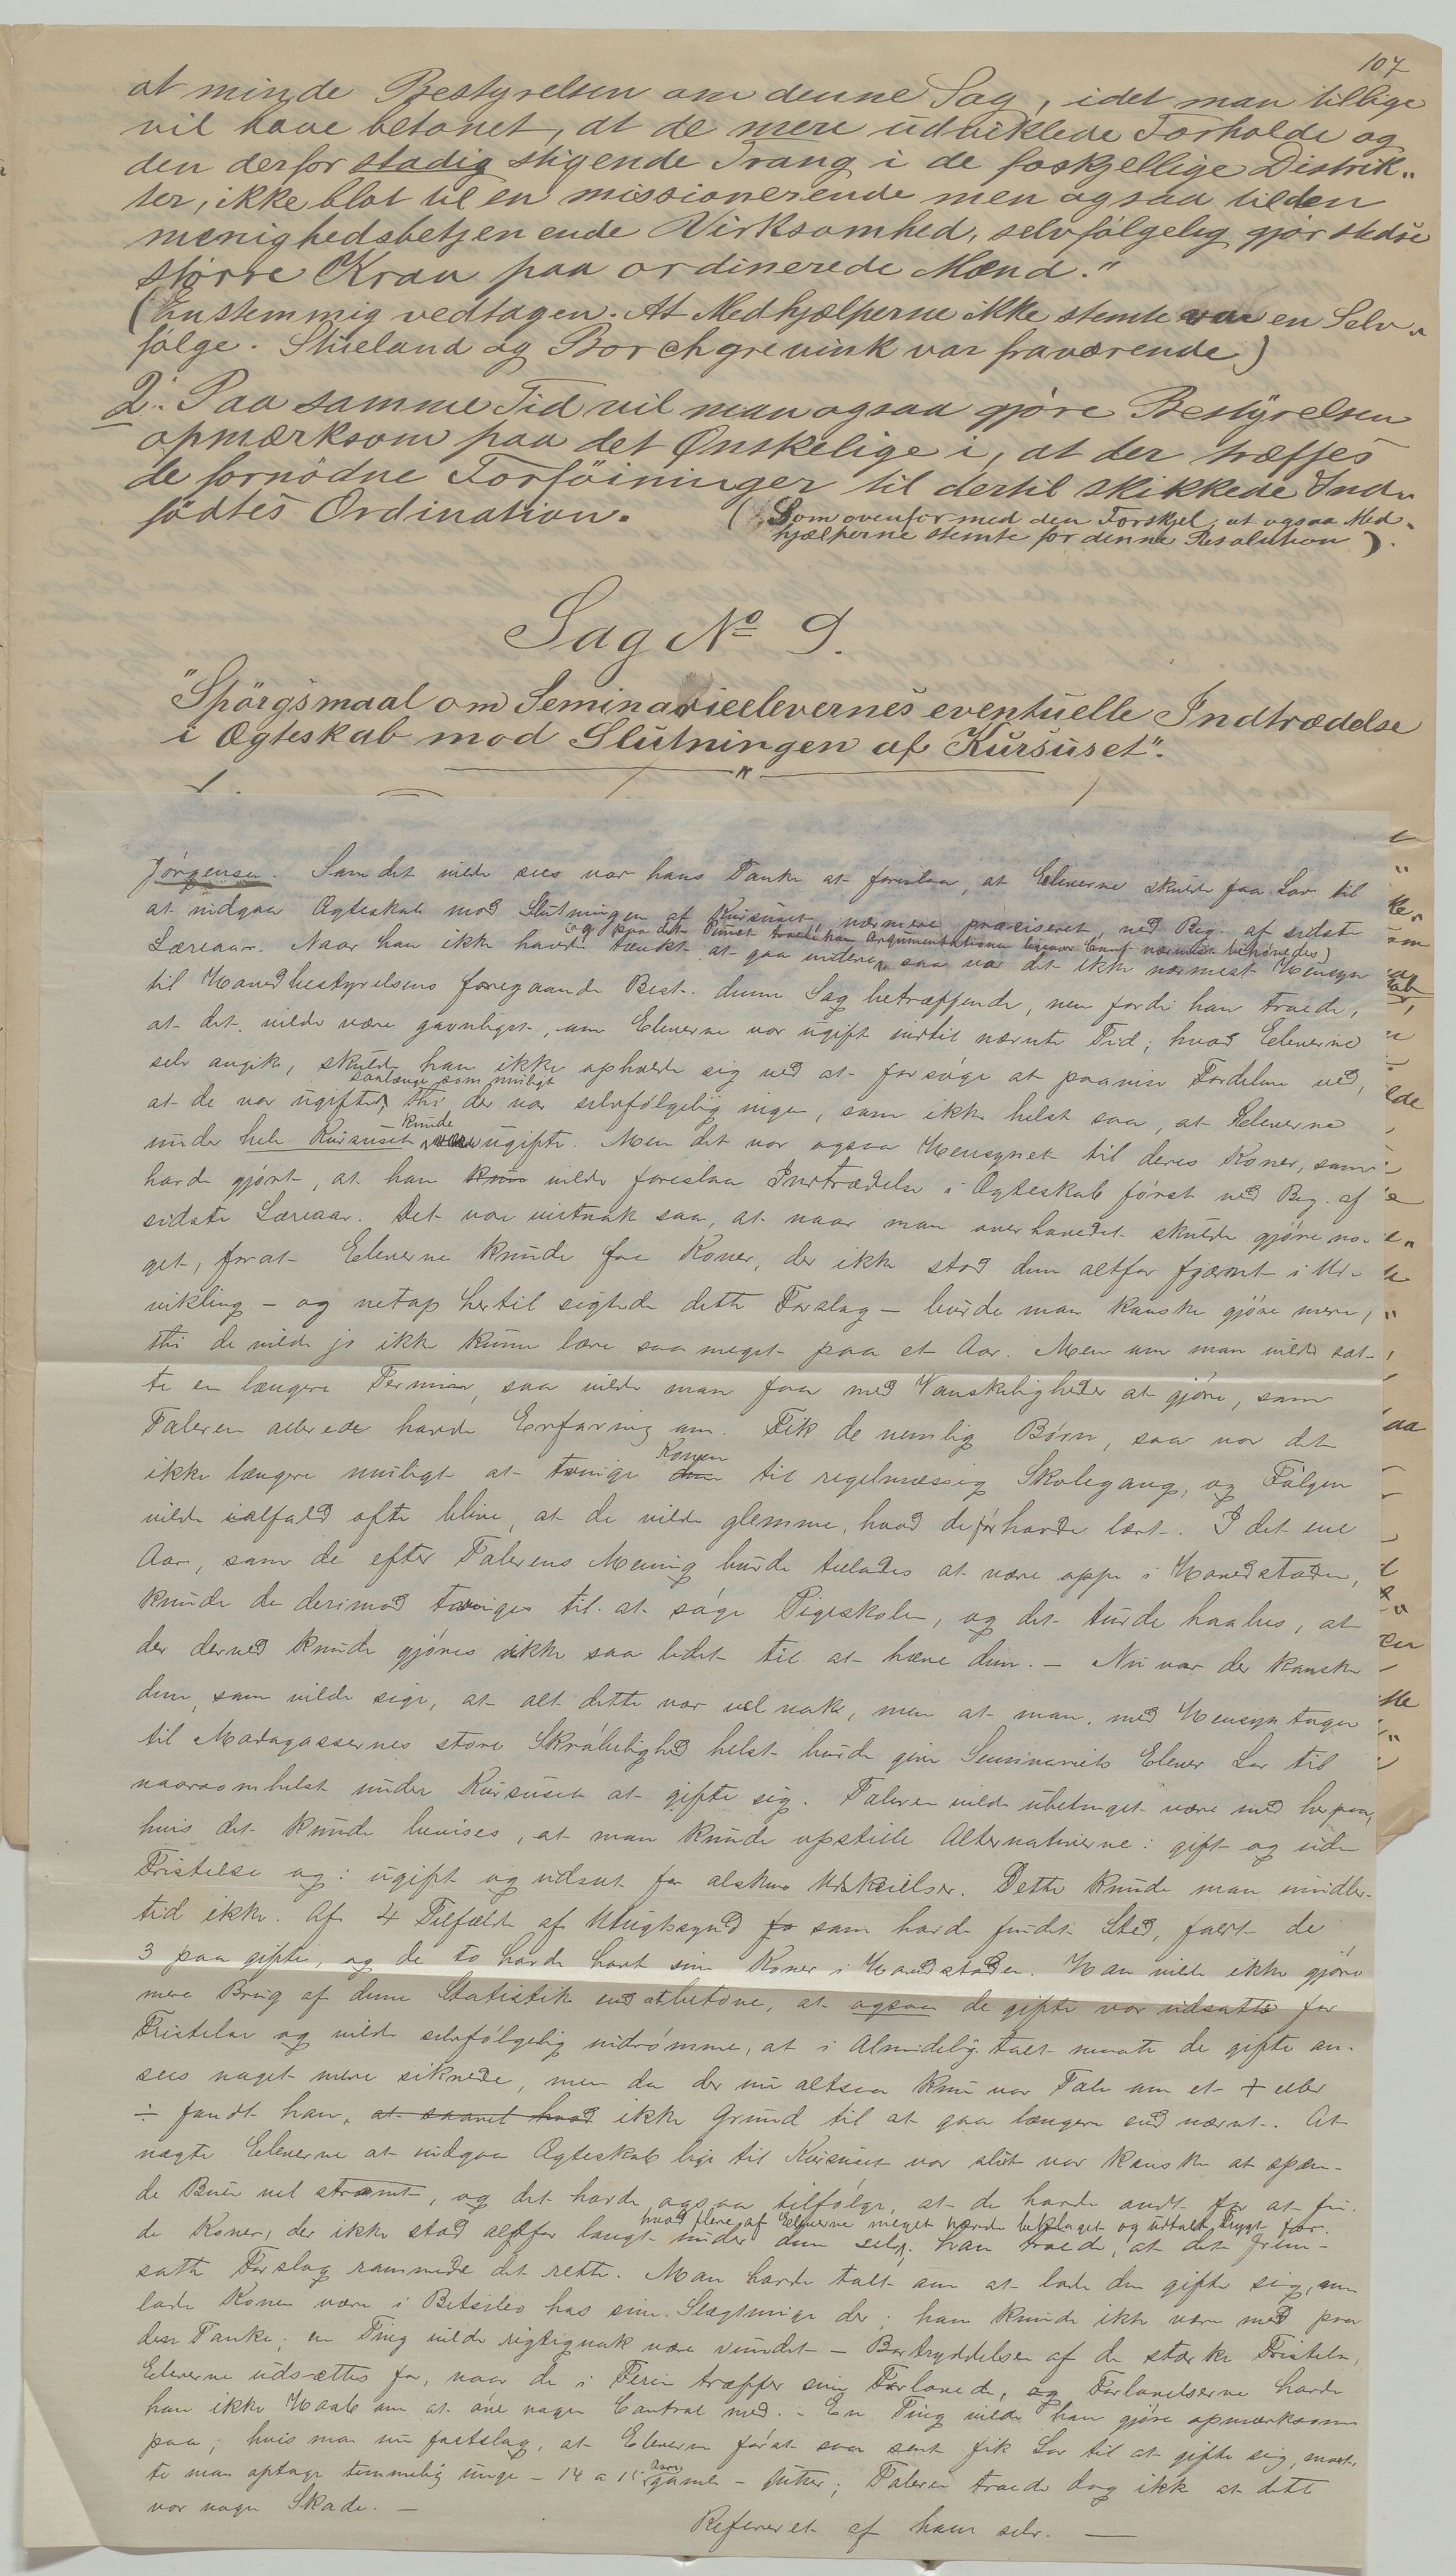 107
at minde Bestyrelsen om denne Sag, idet man tillige
vil have betonet, at de mere udviklede Forholde og
den derfor stadig stigende Trang i de foskjellige Distrik„
ter, ikke blot til en missionerende men ogsaa til den
menighedsbetjenende Virksomhed, selvfölgelig gjör stedse
större Krav paa ordinerede Mænd."
(Enstemmig vedtagen. At Medhjælperne ikke stemte var en Selv„
fölge. Stueland og Borchgrevink var fraværende)
2. Paa samme Tid vil man ogsaa gjöre Bestyrelsen
opmærksom paa det Ønskelige i, at der træffes
de fornödne Forföininger til dertil skikkede Ind„
födtes Ordination. (Som ovenfor med den Forskjel, at ogsaa Med„
hjælperne stemte for denne Resolution).
Sag No 9.
"Spörgsmaal om Seminarieelevernes eventuelle Indtrædelse
i Ægteskab mod Slutningen af Kursuset".
Jörgensen. Som det vilde sees var hans Tanke at foreslaa, at Eleverne skulde faa Lov til
at indgaa Ægteskab mod Slutningen af Kursuset, nærmere præciseret, ved Beg. af sidste
Læreaar. Naar han ikke havde tænkt at gaa videre, (og paa dette Punct troede han Argumentationen ligeover Conf. nærmest behövedes) saa var det ikke nærmest Hensyn
til Hovedbestyrelsens foregaaende Best. denne Sag betræffende, men fordi han troede,
at det vilde være gavnligst, om Eleverne var ugift indtil nævnte Tid; hvad Eleverne
selv angik, skulde han ikke opholde sig ved at forsöge at paavise Fordelene ved,
at de var ugifte saalænge som muligt, thi der var selvfölgelig ingen, som ikke helst saa, at Eleverne
under hele Kursuset kunde være ugifte. Men det var ogsaa Hensynet til deres Koner, som
havde gjört, at han kun vilde foreslaa Indtrædelse i Ægteskab först ved Beg. af
sidste Læreaar. Det var vistnok saa, at naar man overhovedet skulde gjöre no-
get, forat Eleverne kunde faa Koner, der ikke stod dem altfor fjærnt i Ud-
vikling – og netop hertil sigtede dette Forslag – burde man kanske gjöre mere,
thi de vilde jo ikke kunne lære saa meget paa et Aar. Men om man vilde sæt-
te en længere Termin, saa vilde man faa med Vanskeligheder at gjöre, som
Taleren allerede havde Erfaring om. Fik de nemlig Börn, saa var det
ikke længere muligt at tvinge Konen til regelmæssig Skolegang, og Fölgen
vilde ialfald ofte blive, at de vilde glemme, hvad de för havde lært. I det ene
Aar, som de efter Talerens Mening burde tillades at være oppe i Hovedstaden,
kunde de derimod tvinges til at söge Pigeskolen, og det turde haabes, at
der derved kunde gjöres ikke saa lidet til at hæve dem. – Nu var der kanske
dem, som vilde sige, at alt dette var vel nok, men at man, med Hensyntagen
til Madagassernes store Skröbelighed helst burde give Seminariets Elever Lov til
naarsomhelst under Kursuset at gifte sig. Taleren vilde ubetinget være med herpaa,
hvis det kunde bevises, at man kunde opstille Alternativerne: gift og uden
Fristelse og: ugift og udsat for alskens Udskeielser. Dette kunde man imidler-
tid ikke. Af 4 Tilfælde af Utugtssynd som havde fundet Sted, faldt de
3 paa gifte, og de to havde havt sine Koner i Hovedstaden. Han vilde ikke gjöre
mere Brug af denne Statistik end at betone, at ogsaa de gifte var udsatte for
Fristelser og vilde selvfölgelig indrömme, at i Almindelighed talt maatte de gifte an-
sees noget mere sikrede, men da der nu altsaa kun var Tale om et + eller
÷ fandt han, at saavel hvad ikke Grund til at gaa længere end nævnt. At
nægte Eleverne at indgaa Ægteskab lige til Kursuset var slut var kanske at spæn-
de Buen vel stramt, og det havde ogsaa tilfölge, at de havde ondt for at fin-
de Koner, der ikke stod altfor langt under dem selv, hvad flere af Eleverne meget havde beklaget og udtalt Frygt for. han troede, at det frem-
satte Forslag rammede det rette. Man havde talt om at lade dem gifte sig, men
lade Konen være i Betsileo hos sine Slægtninge der; han kunde ikke være med paa
den Tanke; en Ting vilde rigtignok være vundet – Bortryddelsen af de stærke Fristelser,
Eleverne udsættes for, naar de i Ferien træffer sine Forlovede, og Forlovelserne havde
han ikke Haab om at öve nogen Control med. – En Ting vilde han gjöre opmærksom
paa; hvis man nu fastslog, at Eleverne först saa sent fik Lov til at gifte sig, maat-
te man optage temmelig unge – 14 a 15 Aar gamle – Gutter; Taleren troede dog ikke at dette
var nogen Skade. –
Refereret af ham selv. –